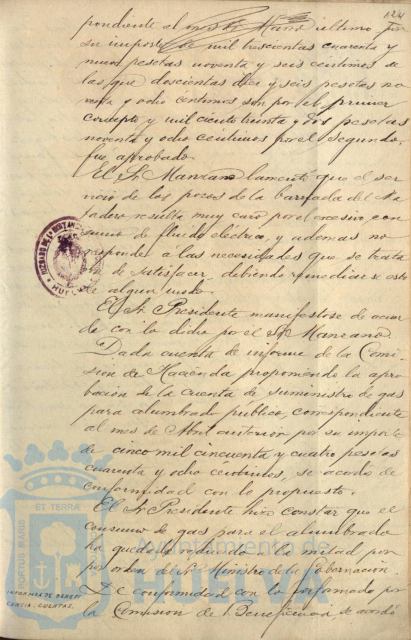 124
pondiente al mes de Marzo último por
su importe de mil trescientas cuarenta y
nueve pesetas noventa y seis centimos de
las que doscientas diez y seis pesetas no
venta y ocho centimos son por el primer
concepto y mil ciento treinta y dos pesetas
noventa y ocho centimos por el segundo,
fue aprobado.
El Sr. Manzano lamenta que el ser
vicio de los pozos de la barriada del Ma
tadero resulta muy caro por el excesivo con
sumo de fluido eléctrico, y además no
responder a las necesidades que se trata
de satisfacer, debiendo remediarse esto
de algun modo.
El Sr. Presidente manifestose de acuer
do con lo dicho por el Sr. Manzano.
Dada cuenta de informe de la Comi
sion de Hacienda proponiendo la apro
bacion de la cuenta de suministro de gas
para alumbrado publico, correspondiente
al mes de Abril anterior por su importe
de cinco mil cincuenta y cuatro pesetas
cuarenta y ocho centimos, se acordo de
conformidad con lo propuesto.
El Sr. Presidente hizo constar que el
consumo de gas para el alumbrado
ha quedado reducido a la mitad por
orden del Sr. Ministro de la Gobernación.
INFORMES DE BENEFI
CENCIA. CUENTAS.
De conformidad con lo informado por
la Comision de Beneficencia se acordó
PORTUS MARIS ET TERRAE
Ayuntamiento de
HUELVA